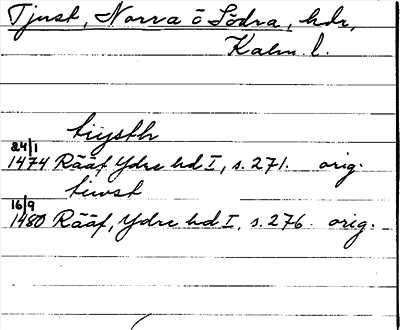 Tjust, Norra o Södra, hdr,
Kalm. l.
tiysth
24/1
1474 Rääf, Ydre hd I, s. 271. orig.
tiwst
16/9
1480 Rääf, Ydre hd I, s. 276. orig.